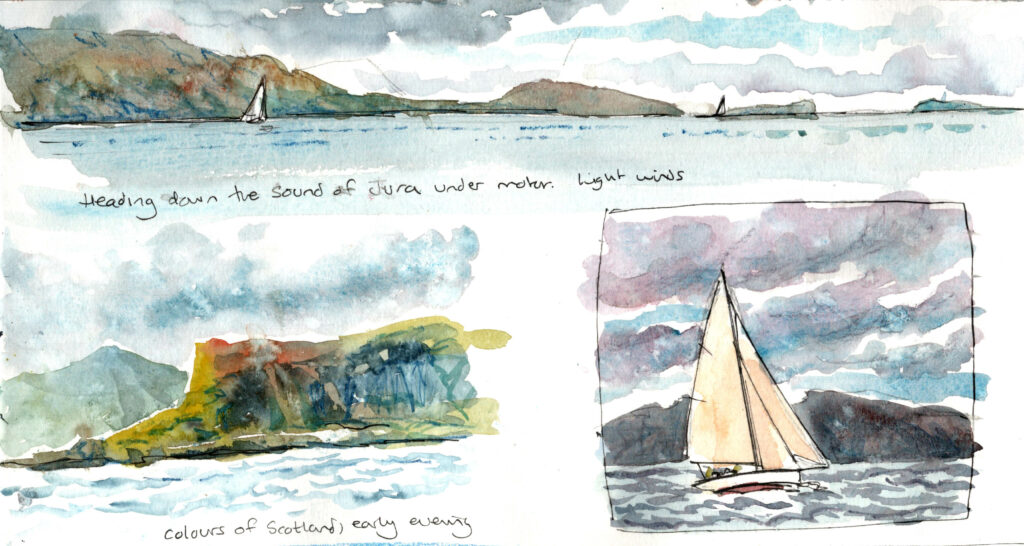 Heading down the Sound of Jura under motor. Light winds
colours of Scotland, early evening